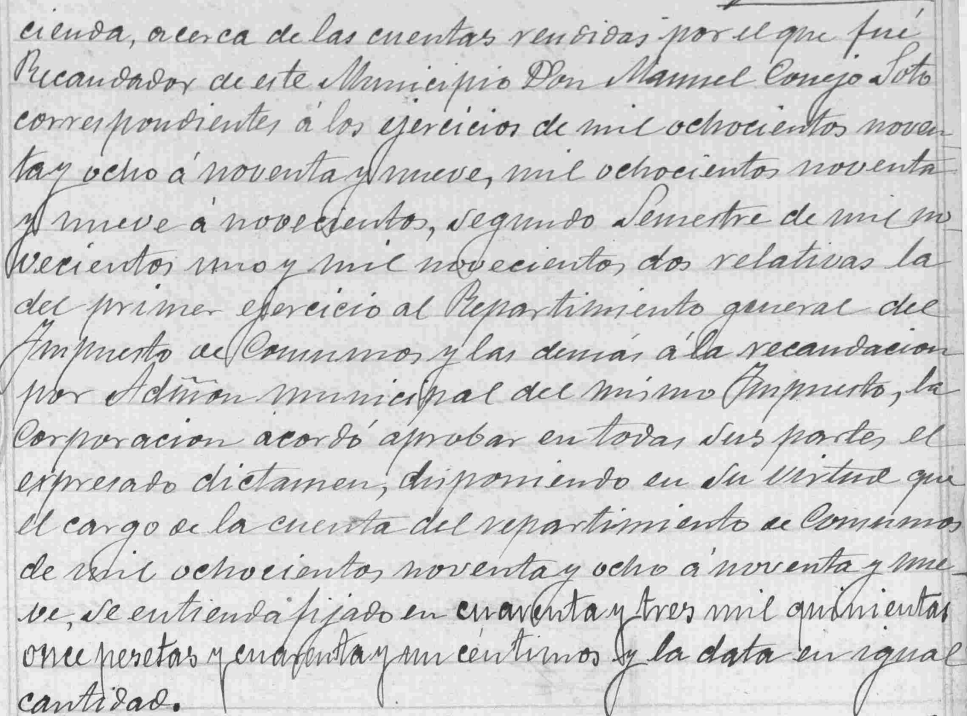 cienda, acerca de las cuentas rendidas por el que fué
Recaudador de este Municipio Don Manuel Conejo Soto
correspondientes á los ejercicios de mil ochocientos noven-
ta y ocho á noventa y nueve, mil ochocientos noventa
y nueve á novecientos, segundo Semestre de mil no-
vecientos uno y mil novecientos dos relativas la
del primer ejercicio al Repartimiento general del
Impuesto de Consumos y las demás á la recaudacion
por Admon municipal del mismo Impuesto, la
Corporacion acordó aprobar en todas sus partes el
expresado dictamen, disponiendo en su virtud que
el cargo de la cuenta del repartimiento de Consumos
de mil ochocientos noventa y ocho á noventa y nue-
ve, se entienda fijado en cuarenta y tres mil quinientas
once pesetas y cuarenta y un céntimos y la data en igual
cantidad.